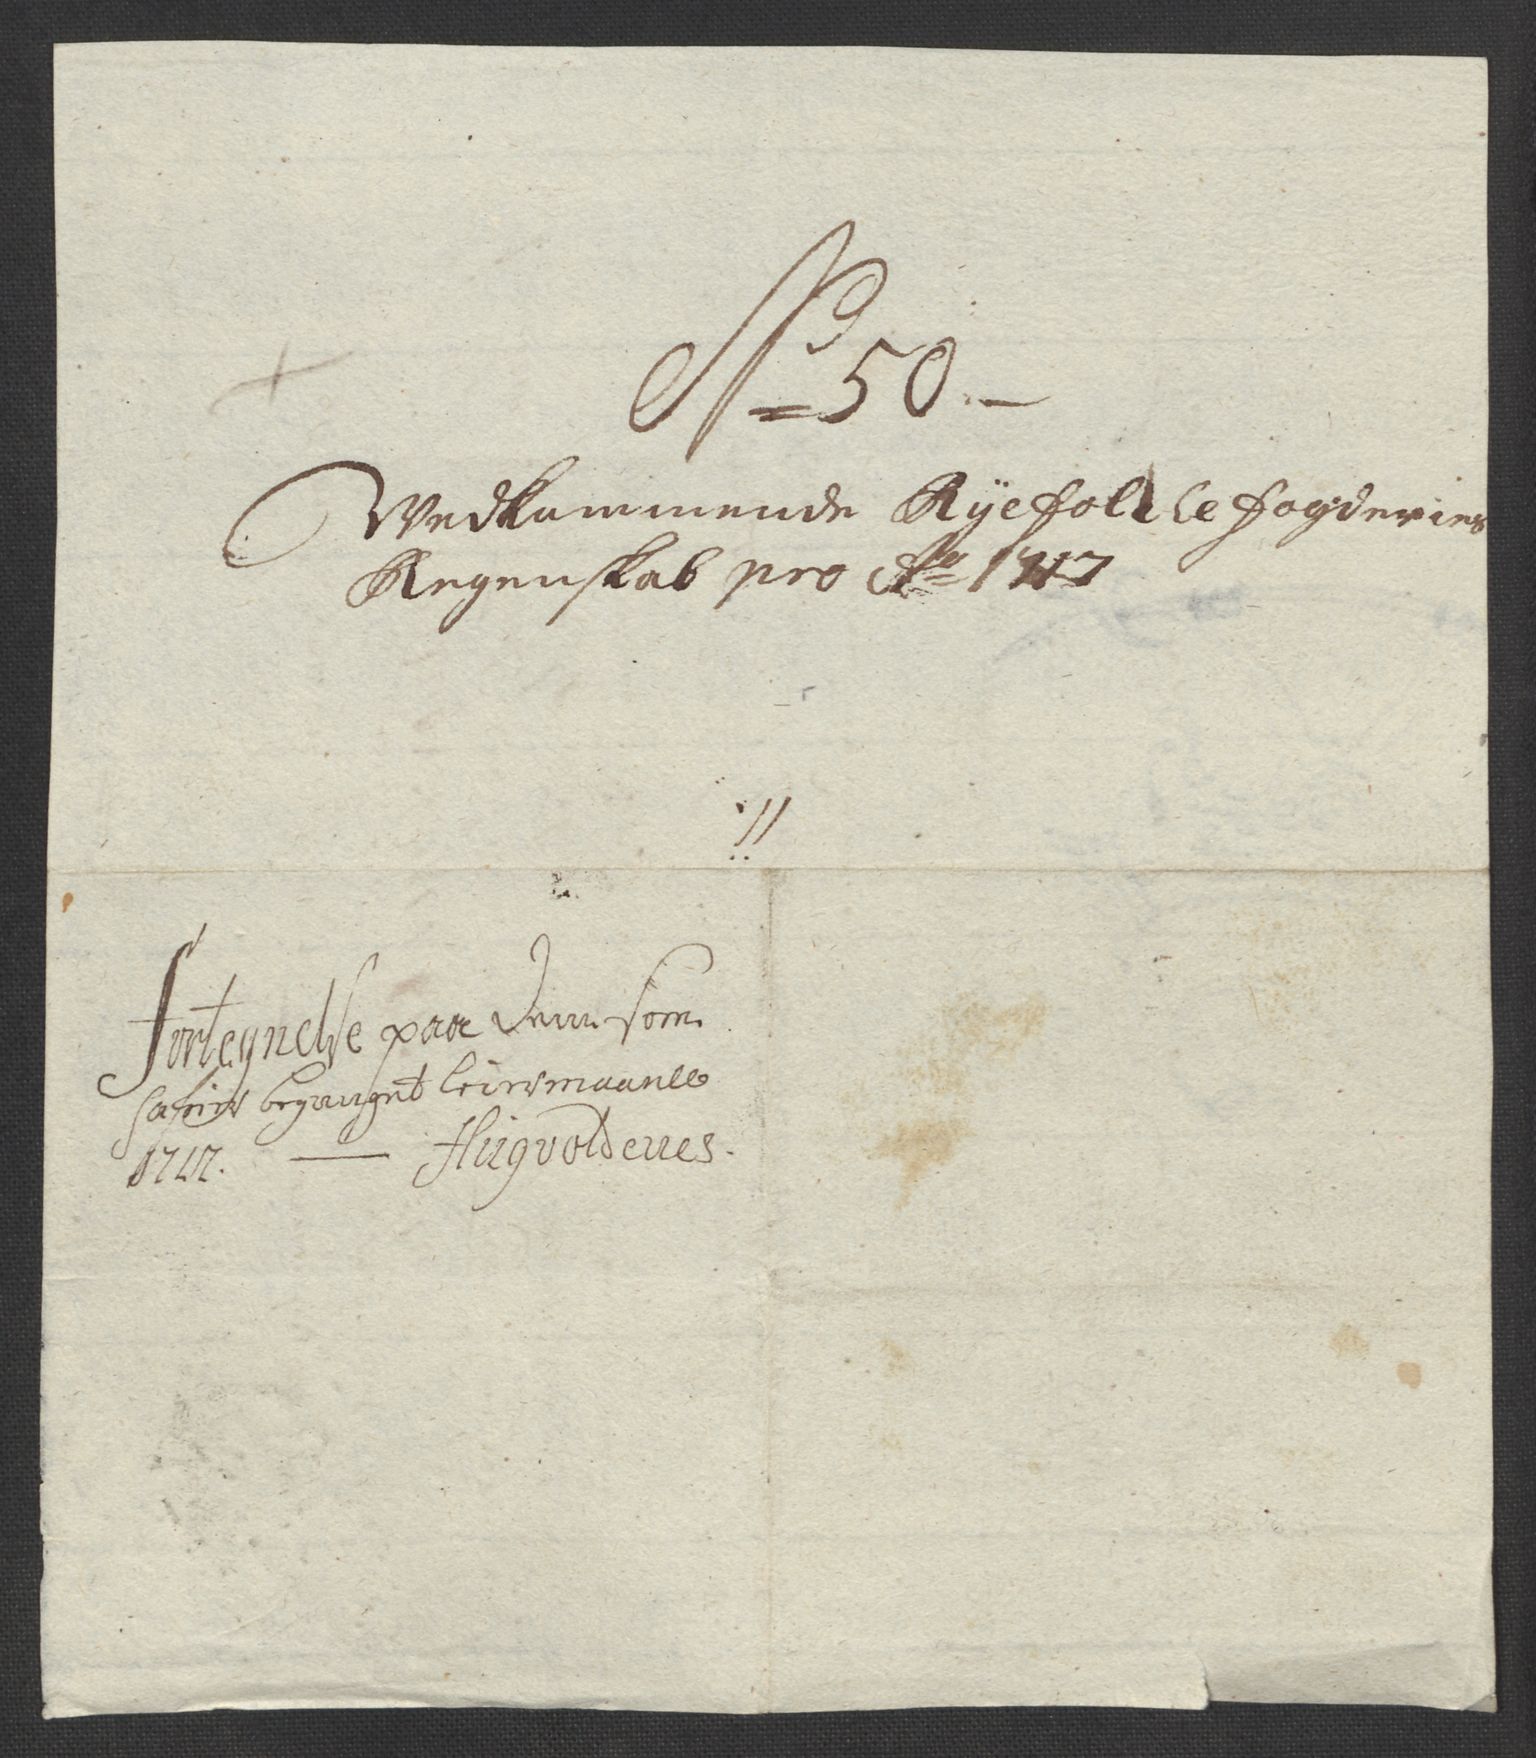 No 50.
Vedkammende Ryefolcke fogderies
Regenskab pro Ao 1717
://:
Fortegnelse paa dem som
hafuer beganget leiermaalle
1717. —